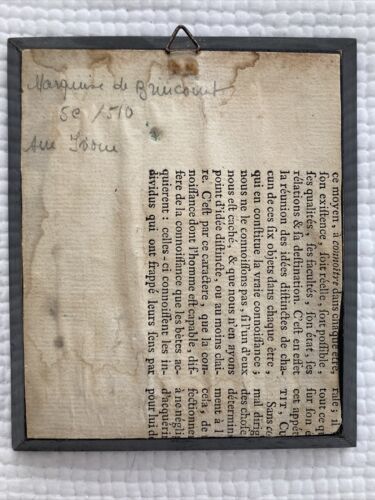 Marquise de Brincourt
5c /510
Sur Ivoire
ce moyen, à connoître dans chaque être,
ſon exiſtence, ſoit réelle, ſoit poſſible,
ſes qualités, ſes facultés, ſon état, ſes
rélations & ſa deſtination. C'eſt en effet
la réunion des idées diſtinctes de cha-
cun de ces ſix objets dans chaque être,
qui en conſtitue la vraie connoiſſance;
nous ne le connoiſſons pas, ſi l'un d'eux
nous eſt caché, & que nous n'en ayons
point d'idée diſtincte, ou au moins clai-
re. C'eſt par ce caractere, que la con-
noiſſance dont l'homme eſt capable, dif-
fere de la connoiſſance que les bêtes ac-
quierent: celles-ci connoiſſent les in-
dividus qui ont frappé leurs ſens par
rale; il
tout ce
ſur ſon
cet appét
TIT, Cu
Sans co
mal dirig
des choſe
détermin
ment à l
de
fectionne
à ne néglig
d'acquérir
pour lui d